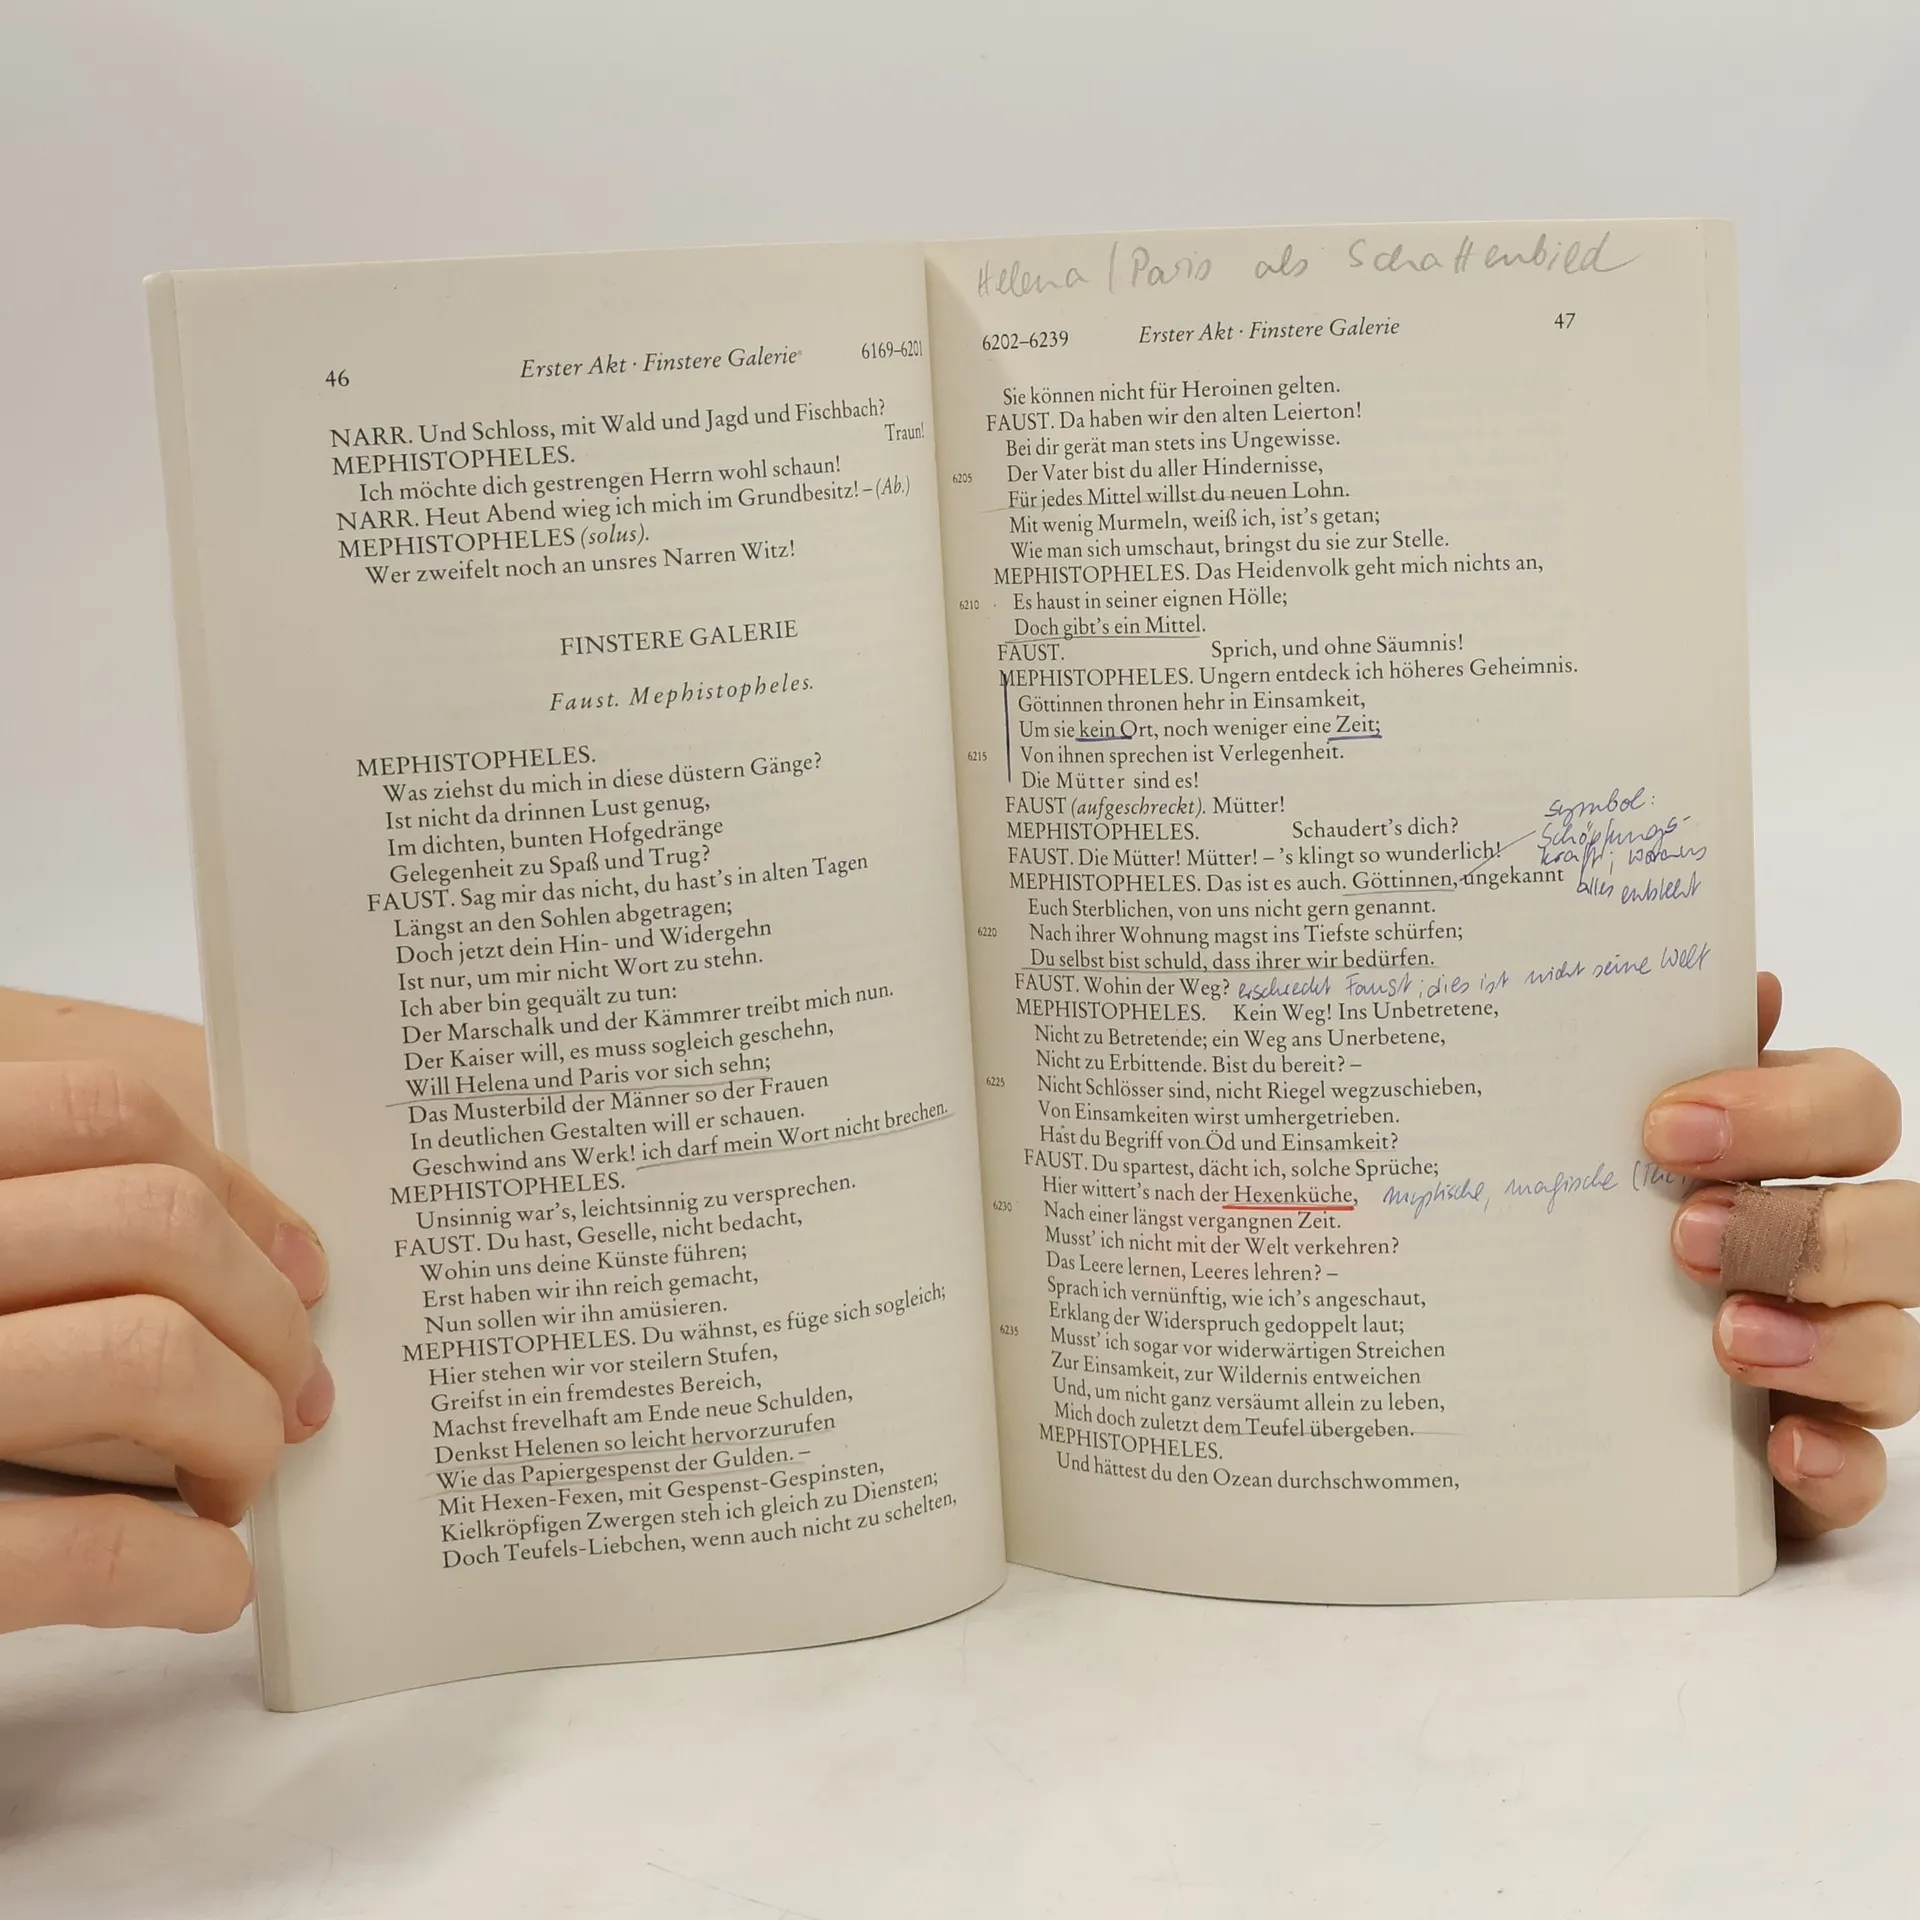 46 Erster Akt · Finstere Galerie 6169–6201
NARR. Und Schloss, mit Wald und Jagd und Fischbach?
MEPHISTOPHELES. Traun!
Ich möchte dich gestrengen Herrn wohl schaun!
NARR. Heut Abend wieg ich mich im Grundbesitz! – (Ab.)
MEPHISTOPHELES (solus).
Wer zweifelt noch an unsres Narren Witz!
FINSTERE GALERIE
Faust. Mephistopheles.
MEPHISTOPHELES.
Was ziehst du mich in diese düstern Gänge?
Ist nicht da drinnen Lust genug,
Im dichten, bunten Hofgedränge
Gelegenheit zu Spaß und Trug?
FAUST. Sag mir das nicht, du hast's in alten Tagen
Längst an den Sohlen abgetragen;
Doch jetzt dein Hin- und Widergehn
Ist nur, um mir nicht Wort zu stehn.
Ich aber bin gequält zu tun:
Der Marschalk und der Kämmrer treibt mich nun.
Der Kaiser will, es muss sogleich geschehn,
Will Helena und Paris vor sich sehn;
Das Musterbild der Männer so der Frauen
In deutlichen Gestalten will er schauen.
Geschwind ans Werk! ich darf mein Wort nicht brechen.
MEPHISTOPHELES.
Unsinnig war's, leichtsinnig zu versprechen.
FAUST. Du hast, Geselle, nicht bedacht,
Wohin uns deine Künste führen;
Erst haben wir ihn reich gemacht,
Nun sollen wir ihn amüsieren.
MEPHISTOPHELES. Du wähnst, es füge sich sogleich;
Hier stehen wir vor steilern Stufen,
Greifst in ein fremdestes Bereich,
Machst frevelhaft am Ende neue Schulden,
Denkst Helenen so leicht hervorzurufen
Wie das Papiergespenst der Gulden. –
Mit Hexen-Fexen, mit Gespenst-Gespinsten,
Kielkröpfigen Zwergen steh ich gleich zu Diensten;
Doch Teufels-Liebchen, wenn auch nicht zu schelten,
Helena / Paris als Schattenbild
6202–6239 Erster Akt · Finstere Galerie 47
Sie können nicht für Heroinen gelten.
FAUST. Da haben wir den alten Leierton!
Bei dir gerät man stets ins Ungewisse.
6205 Der Vater bist du aller Hindernisse,
Für jedes Mittel willst du neuen Lohn.
Mit wenig Murmeln, weiß ich, ist's getan;
Wie man sich umschaut, bringst du sie zur Stelle.
MEPHISTOPHELES. Das Heidenvolk geht mich nichts an,
6210 Es haust in seiner eignen Hölle;
Doch gibt's ein Mittel.
FAUST. Sprich, und ohne Säumnis!
MEPHISTOPHELES. Ungern entdeck ich höheres Geheimnis.
Göttinnen thronen hehr in Einsamkeit,
Um sie kein Ort, noch weniger eine Zeit;
6215 Von ihnen sprechen ist Verlegenheit.
Die Mütter sind es!
FAUST (aufgeschreckt). Mütter!
MEPHISTOPHELES. Schaudert's dich?
FAUST. Die Mütter! Mütter! – 's klingt so wunderlich!
MEPHISTOPHELES. Das ist es auch. Göttinnen, ungekannt
symbol:
Schöpfungs-
kraft; woraus
alles entsteht
Euch Sterblichen, von uns nicht gern genannt.
6220 Nach ihrer Wohnung magst ins Tiefste schürfen;
Du selbst bist schuld, dass ihrer wir bedürfen.
FAUST. Wohin der Weg? erschreckt Faust; dies ist nicht seine Welt
MEPHISTOPHELES. Kein Weg! Ins Unbetretene,
Nicht zu Betretende; ein Weg ans Unerbetene,
Nicht zu Erbittende. Bist du bereit? –
6225 Nicht Schlösser sind, nicht Riegel wegzuschieben,
Von Einsamkeiten wirst umhergetrieben.
Hast du Begriff von Öd und Einsamkeit?
FAUST. Du spartest, dächt ich, solche Sprüche;
Hier wittert's nach der Hexenküche, mystische, magische
6230 Nach einer längst vergangnen Zeit.
Musst' ich nicht mit der Welt verkehren?
Das Leere lernen, Leeres lehren? –
Sprach ich vernünftig, wie ich's angeschaut,
Erklang der Widerspruch gedoppelt laut;
6235 Musst' ich sogar vor widerwärtigen Streichen
Zur Einsamkeit, zur Wildernis entweichen
Und, um nicht ganz versäumt allein zu leben,
Mich doch zuletzt dem Teufel übergeben.
MEPHISTOPHELES.
Und hättest du den Ozean durchschwommen,